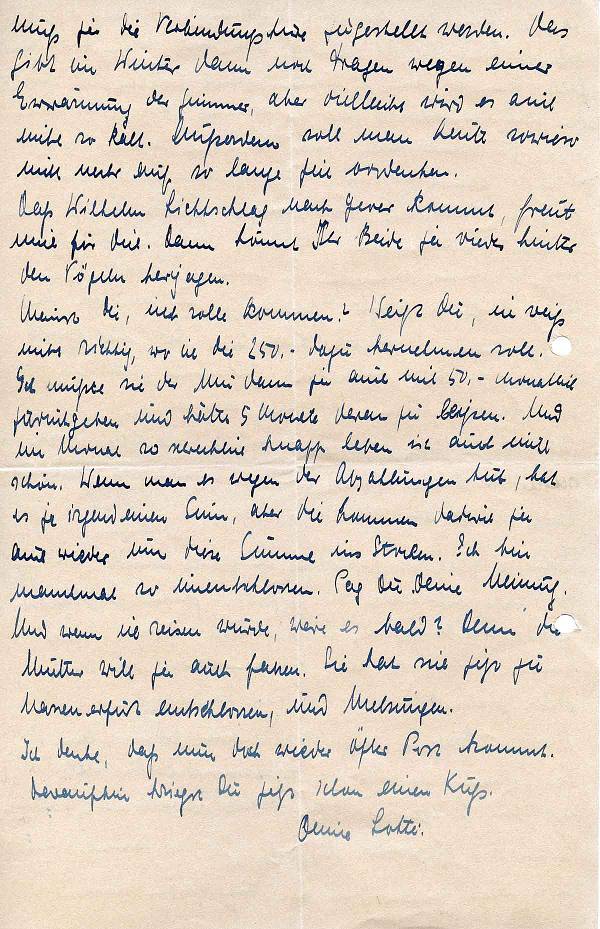 muß für die Verbindungstüre zugestellt werden. Das
gibt im Winter dann noch Fragen wegen einer
Erwärmung der Zimmer, aber vielleicht wird es auch
nicht so kalt. Außerdem soll man heute sowieso
nicht mehr auf so lange Zeit vordenken.
Daß Wilhelm Lichtschlag nach Jever kommt, freut
mich für Dich. Dann könnt Ihr Beide ja wieder hinter
den Vögeln herjagen.
Meinst Du, ich solle kommen? Weißt Du, ich weiß
nicht richtig, wo ich die 250.- dazu hernehmen soll.
Ich müßte sie der Mu dann ja auch mit 50.- monatlich
zurückgeben und hätte 5 Monate daran zu. Und
im Monat so schrecklich knapp leben ist auch nicht
schön. Wenn man es wegen der Abzahlungen tut, hat
es ja irgend einen Sinn, aber die kommen dadurch ja
auch wieder um diese Summe ins Stocken. Ich bin
manchmal so unentschlossen. Sag Du Deine Meinung.
Und wenn ich reisen würde, wäre es bald? Denn die
Mutter will ja auch fahren. Sie hat sich jetzt zu
entschlossen, und Melsungen.
Ich denke, daß nun doch wieder öfter Post kommt.
Daraufhin kriegst Du jetzt schon einen Kuß.
Deine Lotti.